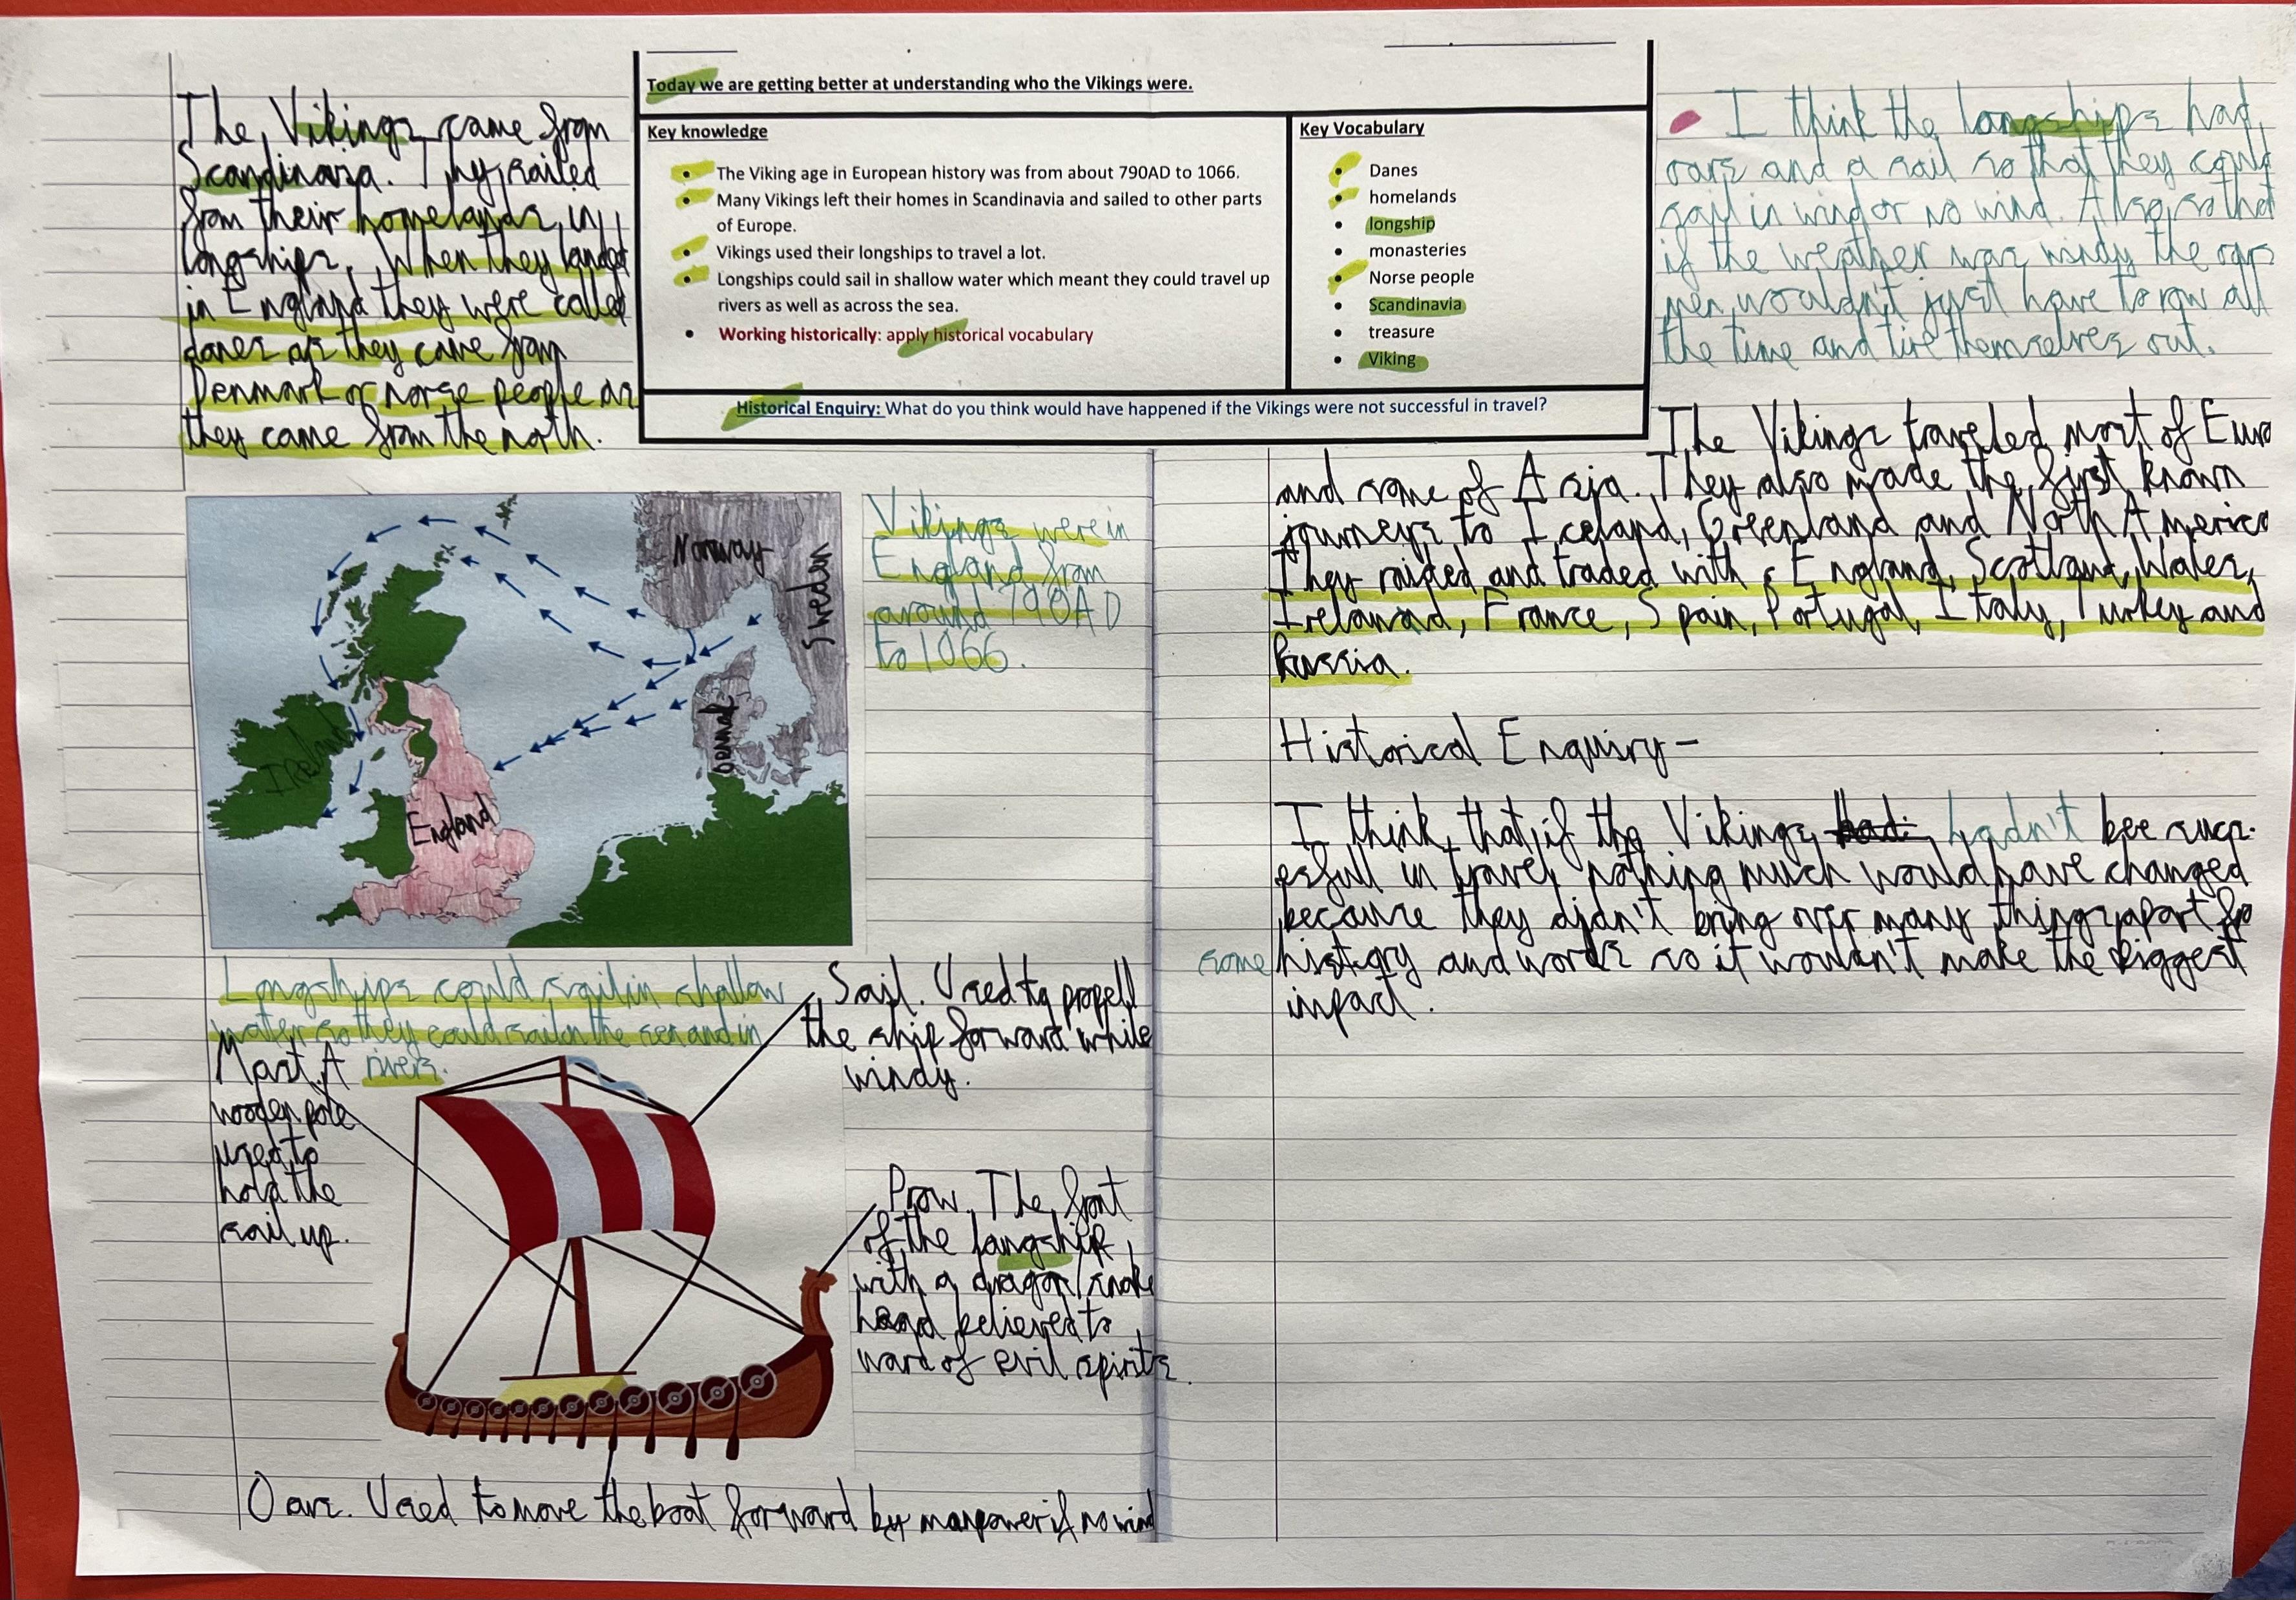 Today we are getting better at understanding who the Vikings were.
Key knowledge
The Viking age in European history was from about 790AD to 1066.
Many Vikings left their homes in Scandinavia and sailed to other parts
of Europe.
Vikings used their longships to travel a lot.
Longships could sail in shallow water which meant they could travel up
rivers as well as across the sea.
Working historically: apply historical vocabulary
Key Vocabulary
Danes
homelands
longship
monasteries
Norse people
Scandinavia
treasure
Viking
Historical Enquiry: What do you think would have happened if the Vikings were not successful in travel?
The Vikings came from
Scandinavia. They sailed
from their homelands in
longships. When they landed
in England they were called
danes as they came from
Denmark or norse people as
they came from the north.
Norway
Sweden
Denmark
Ireland
England
Vikings were in
England from
around 790AD
to 1066.
Longships could sail in shallow
water so they could sail on the sea and in
rivers.
Mast. A
wooden pole
used to
hold the
sail up.
Sail. Used to propell
the ship forward while
windy.
Prow. The front
of the longship
with a dragon/snake
head believed to
ward of evil spirits.
Oars. Used to move the boat forward by manpower if no wind
I think the longships had
oars and a sail so that they could
sail in wind or no wind. Also so that
if the weather was windy the oars
men wouldn't just have to row all
the time and tire themselves out.
The Vikings traveled most of Euro
and some of Asia. They also made the first known
journeys to Iceland, Greenland and North America
They raided and traded with England, Scotland, Wales,
Ireland, France, Spain, Portugal, Italy, Turkey and
Russia.
Historical Enquiry-
I think that if the Vikings had hadn't bee succ-
esfull in travel nothing much would have changed
because they didn't bring over many things apart fro
some history and words so it wouldn't make the biggest
impact.